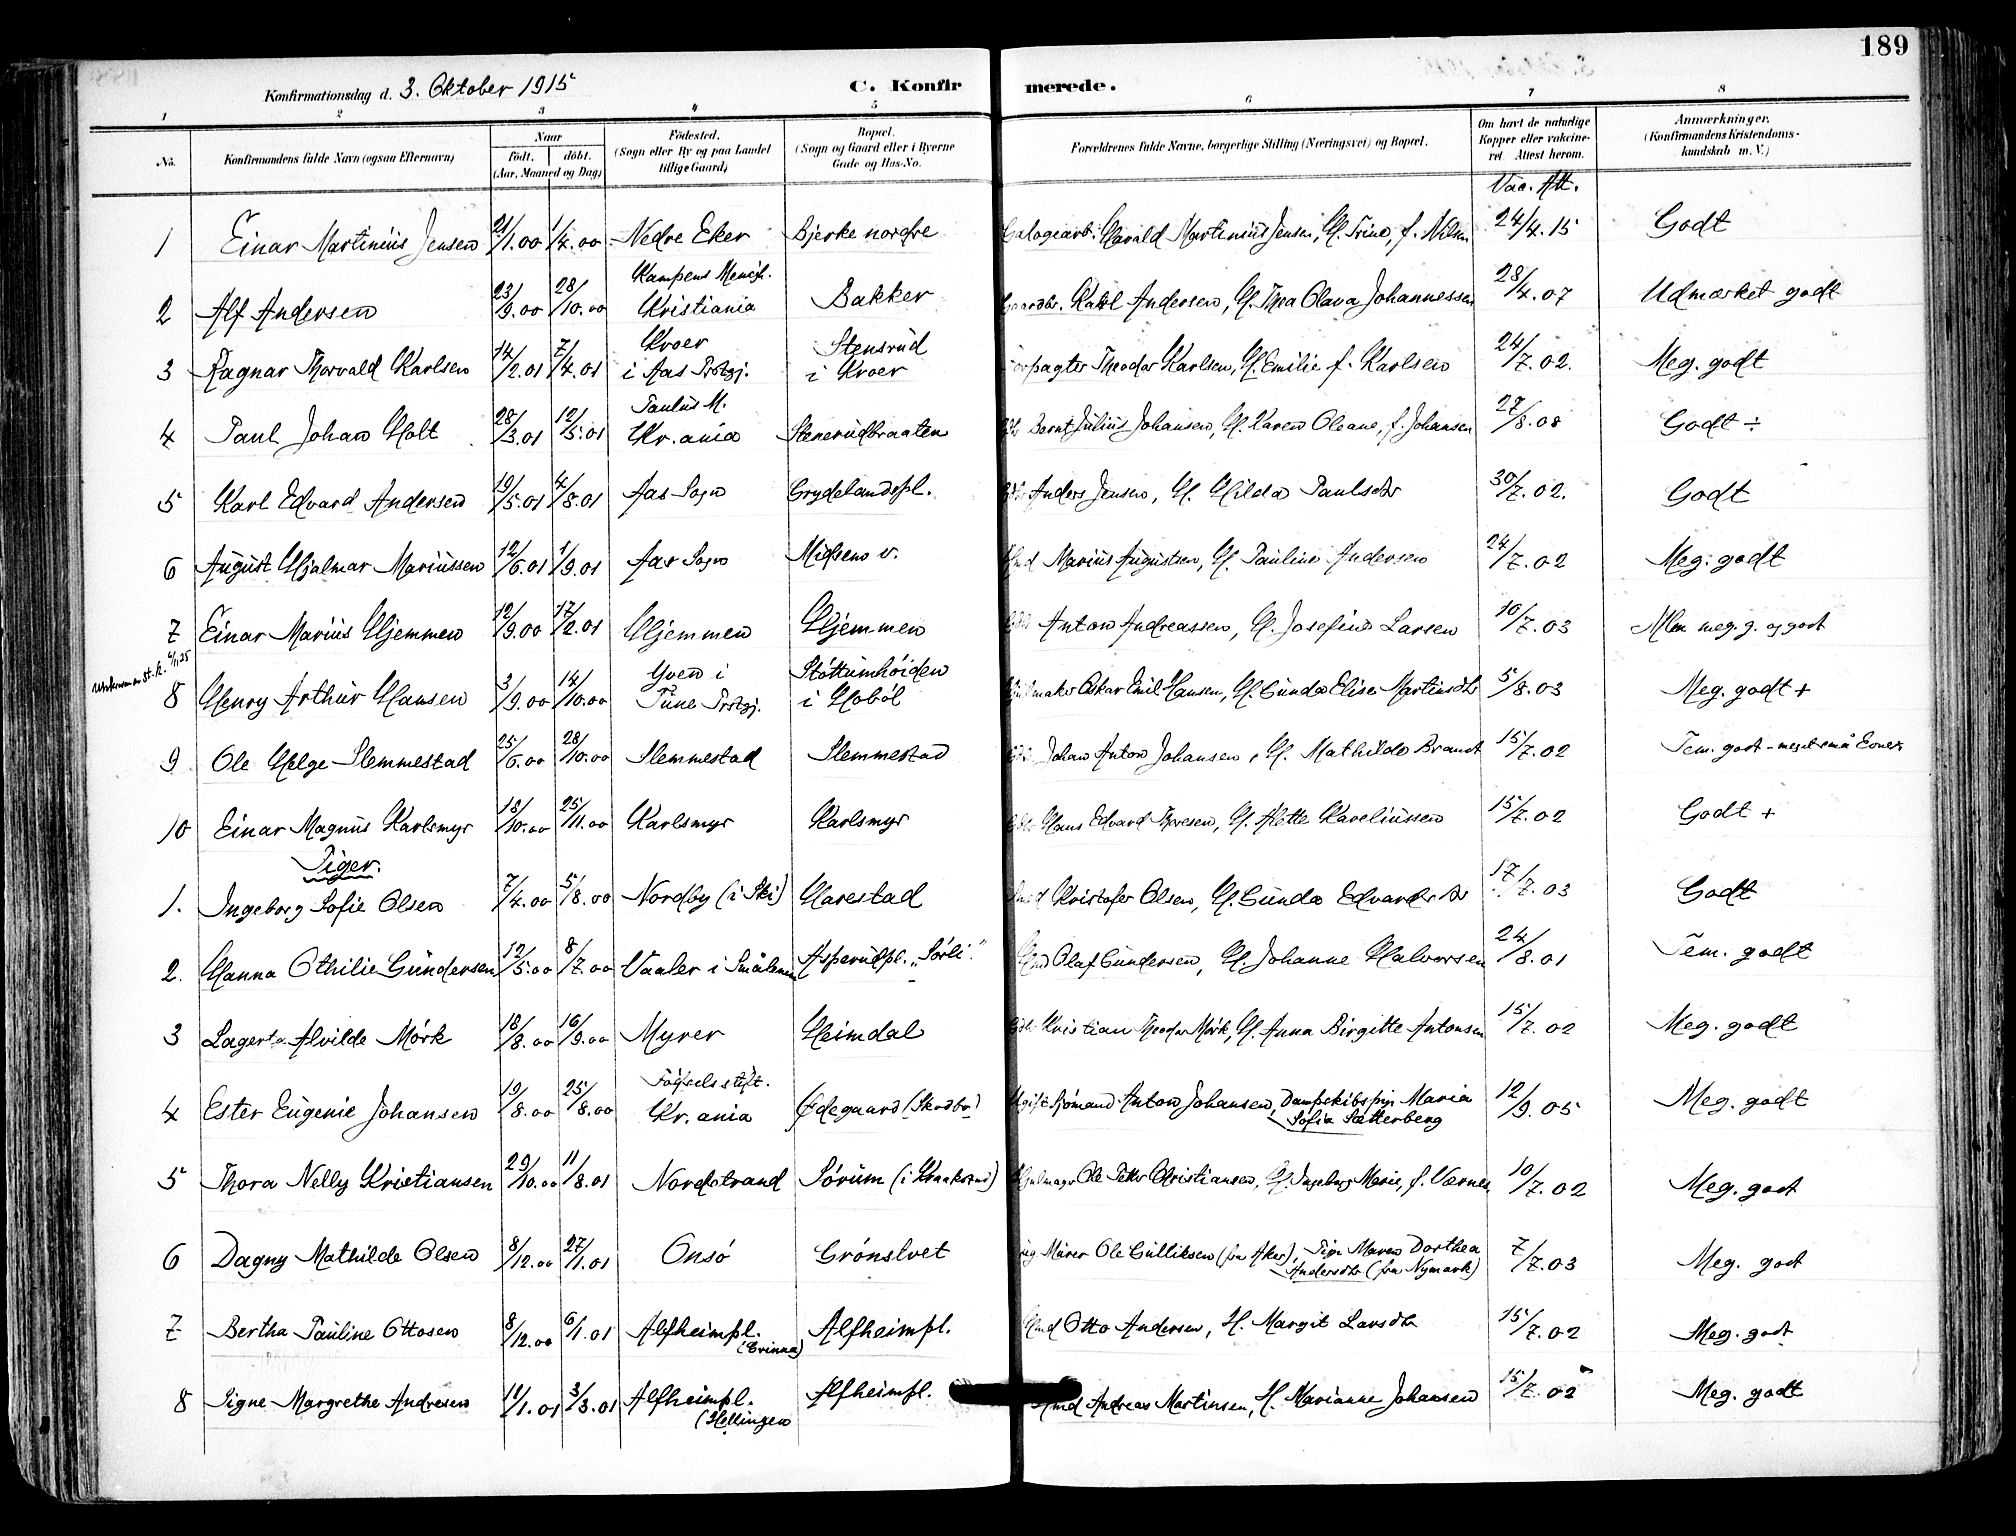 189
Konfirmationsdag d. 3. Oktober 1915 C. Konfirmerede.
1 2 3 4 5 6 7 8
No. Konfirmandens fulde Navn (ogsaa Efternavn) Naar født, døbt, (Aar, Maaned og Dag) Fødested. (Sogn eller By og paa Landet tillige Gaard) Bopæl. (Sogn og Gaard eller i Byerne Gade og Hus-No. Forældrenes fulde Navne, borgerlige Stilling (Næringsvei) og Bopæl. Om havt de naturlige Kopper eller vakcineret. Attest herom. Anmærkninger. (Konfirmandens Kristendomskundskab m. V.)
Vac. Att.
1 Einar Martinius Jensen 21/1.00 1/4.00 Nedre Eker Bjerke nordre Harald Martinius Jensen, H. Trine, f. Nilsen 24/4.15 Godt
2 Alf Andersen 23/9.00 28/10.00 Kampens Menigh. Kristiania Bakker Gaardbr. Karl Andersen, H. Thea Olava Johannessen 28/4.07 Udmærket godt
3 Ragnar Thorvald Karlsen 14/2.01 7/4.01 Kroer i Aas Prstgj. Stensrud i Kroer Forpagter Theodor Karlsen, H. Emilie f. Karlsen 24/7.02. Meg. godt
4 Paul Johan Holt 28/3.01 12/5.01 Paulus M. Kr.ania Stenerudbraaten Bernt Julius Johansen, H. Karen Oleane, f. Johansen 27/8.08 Godt ÷
5 Karl Edvard Andersen 19/5.01 4/8.01 Aas Sogn Grydelandspl. Anders Jensen, H. Hilda Paulsdtr 30/7.02. Godt
6 August Hjalmar Mariussen 12/6.01 1/9.01 Aas Sogn Midsem v. Marius Augustsen, H. Pauline Andersen 24/7.02 Meg. godt
7 Einar Marius Hjemmen 12/9.00 17/2.01 Hjemmen Hjemmen Anton Andreassen, H. Josefine Larsen 10/7.03 Mlm meg. g. og godt
8 Henry Arthur Hansen 3/9.00 14/10.00 Yven i Tune Prstgj. Støttumhøiden i Hobøl Oskar Emil Hansen, H. Gunda Elise Martinsdtr 5/8.03 Meg. godt +
9 Ole Helge Slemmestad 25/6.00 28/10.00 Slemmestad Slemmestad Johan Anton Johansen, H. Mathilde Brandt 15/7.02 Tem. godt - meget små Evner
10 Einar Magnus Karlsmyr 18/10.00 25/11.00 Karlsmyr Karlsmyr Hans Edvard Thoresen, H. Alette Kareliussen 15/7.02 Godt +
Piger.
1. Ingeborg Sofie Olsen 7/4.00 5/8.00 Nordby (i Ski) Harestad Kristofer Olsen, H. Gunda Edvardsdtr 17/7.03 Godt
2. Hanna Othilie Gundersen 12/5.00 8/7.00 Vaaler i Smålenene Asperudpl. „Sørli“ Olaf Gundersen, H. Johanne Halvorsen 24/8.01 Tem. godt
3 Lagerta Alvilde Mørk 18/8.00 16/9.00 Myrer Heimdal Kristian Theodor Mørk, H. Anna Birgitte Antonsen 15/7.02 Meg. godt
4 Ester Eugenie Johansen 19/8.00 25/8.00 Fødselsstift. Kr.ania Ødegaard (Skodbo) Ugift Sjømand Anton Johansen, Dampskibspige Maria Sofia Sætterberg 12/9.05 Meg. godt
5 Thora Nelly Kristiansen 29/10.00 11/8.01 Nordstrand Sørum (i Kraakstad) Hjulmager Ole Petter Christiansen, H. Ingeborg Marie, f. Værnes 10/7.02 Meg. godt
6 Dagny Mathilde Olsen 8/12.00 27/1.01 Onsø Grønslvet Murer Ole Gulliksen (fra Aker), Pige Maren Dorthea Andersdtr (fra Nymark) 7/7.03 Meg. godt
7 Bertha Pauline Ottosen 8/12.00 6/1.01 Alfheimpl. Alfheimpl. Otto Andersen, H. Margit Larsdtr 15/7.02 Meg. godt
8 Signe Margrethe Andresen 19/1.01 3/3.01 Alfheimpl. (Hellingen Alfheimpl. Andreas Martinsen, H. Marianne Johansen 15/7.02 Meg. godt